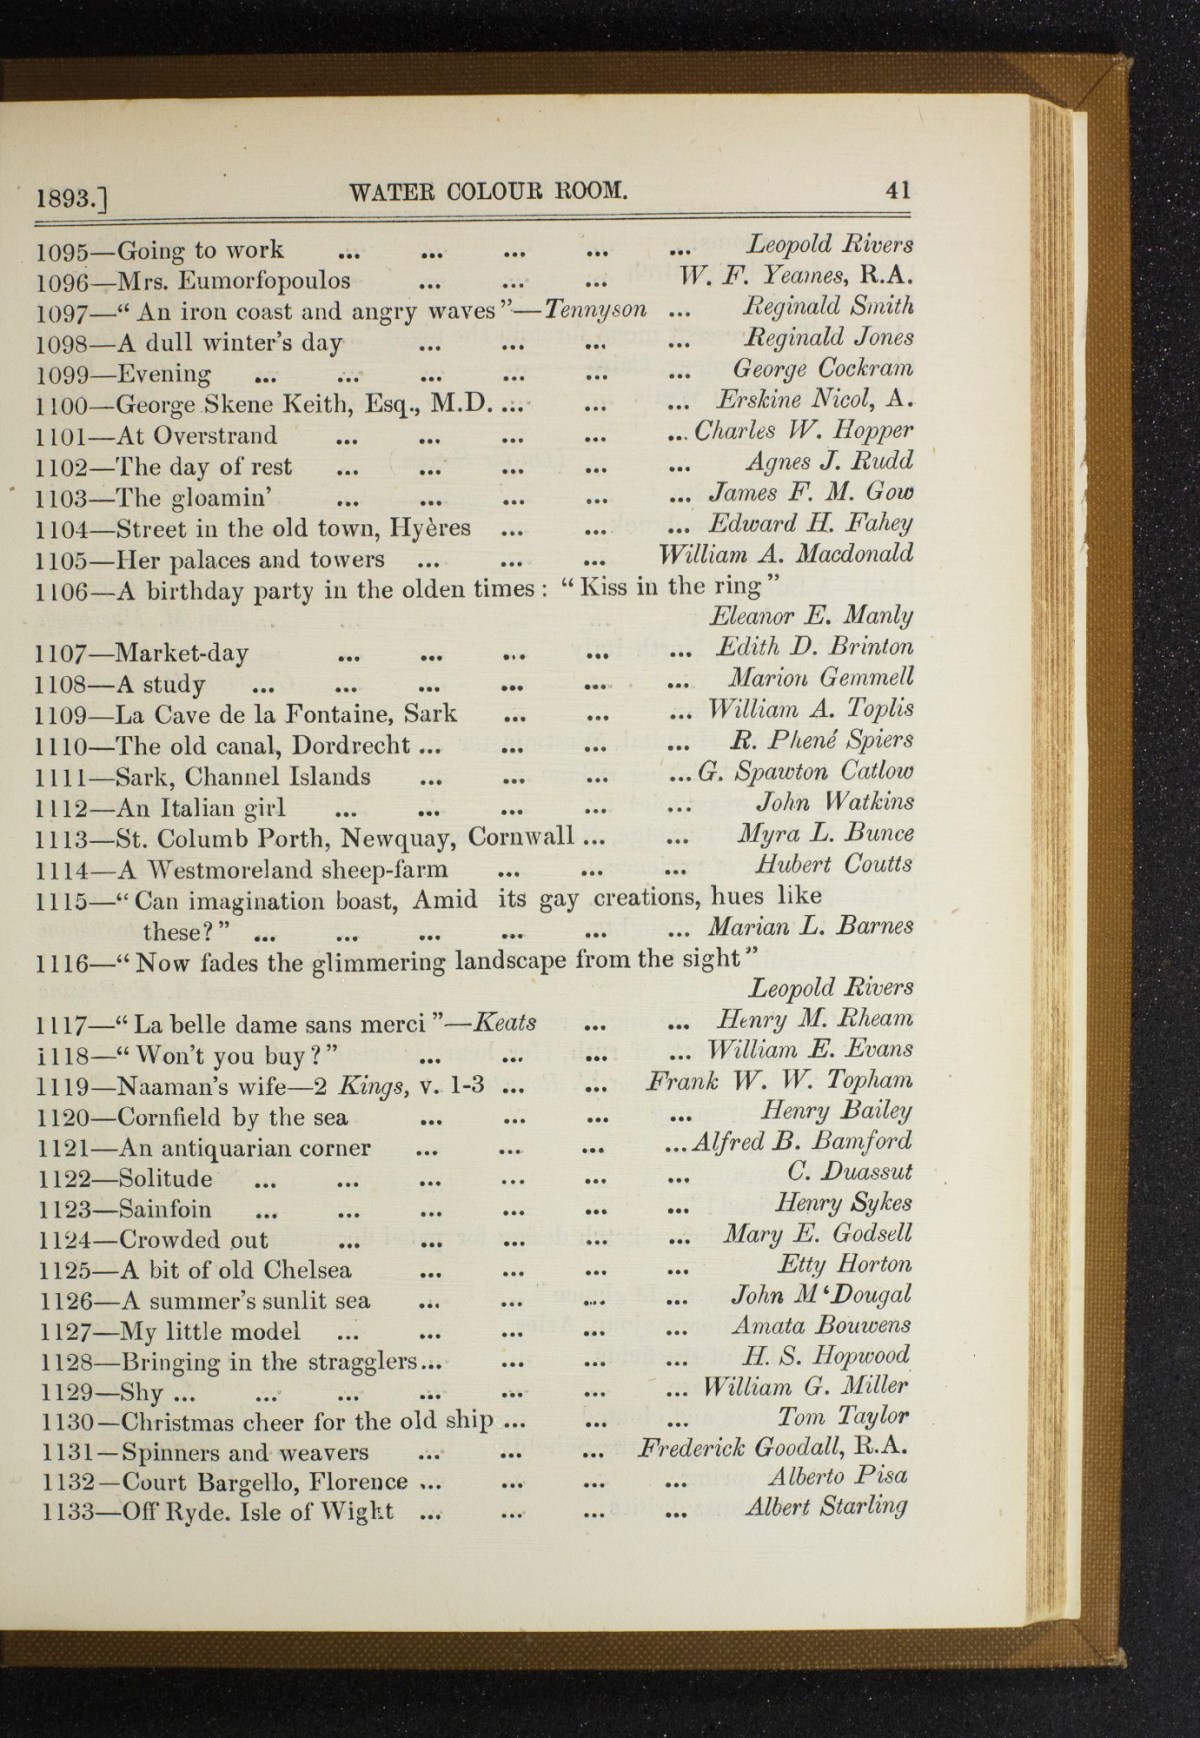 1893.] WATER COLOUR ROOM. 41
1095—Going to work ... ... ... ... ... Leopold Rivers
1096—Mrs. Eumorfopoulos ... ... ... W. F. Yeames, R.A.
1097—“ An iron coast and angry waves”—Tennyson ... Reginald Smith
1098—A dull winter’s day ... ... ... ... Reginald Jones
1099—Evening ... ... ... ... ... ... George Cockram
1100—George Skene Keith, Esq., M.D. ... ... ... Erskine Nicol, A.
1101—At Overstrand ... ... ... ... ... Charles W. Hopper
1102—The day of rest ... ... ... ... ... Agnes J. Rudd
1103—The gloamin’ ... ... ... ... ... James F. M. Gow
1104—Street in the old town, Hyères ... ... ... Edward H. Fahey
1105—Her palaces and towers ... ... ... William A. Macdonald
1106—A birthday party in the olden times : “ Kiss in the ring”
Eleanor E. Manly
1107—Market-day ... ... ... ... ... Edith D. Brinton
1108—A study ... ... ... ... ... ... Marion Gemmell
1109—La Cave de la Fontaine, Sark ... ... ... William A. Toplis
1110—The old canal, Dordrecht ... ... ... ... R. Phené Spiers
1111—Sark, Channel Islands ... ... ... ... G. Spawton Catlow
1112—An Italian girl ... ... ... ... ... John Watkins
1113—St. Columb Porth, Newquay, Cornwall ... ... Myra L. Bunce
1114—A Westmoreland sheep-farm ... ... ... Hubert Coutts
1115—“ Can imagination boast, Amid its gay creations, hues like
these?” ... ... ... ... ... ... Marian L. Barnes
1116—“ Now fades the glimmering landscape from the sight”
Leopold Rivers
1117—“ La belle dame sans merci ”—Keats ... ... Henry M. Rheam
i118—“ Won’t you buy?” ... ... ... ... William E. Evans
1119—Naaman’s wife—2 Kings, v. 1-3 ... ... Frank W. W. Topham
1120—Cornfield by the sea ... ... ... ... Henry Bailey
1121—An antiquarian corner ... ... ... ... Alfred B. Bamford
1122—Solitude ... ... ... ... ... ... C. Duassut
1123—Sainfoin ... ... ... ... ... ... Henry Sykes
1124—Crowded out ... ... ... ... ... Mary E. Godsell
1125—A bit of old Chelsea ... ... ... ... Etty Horton
1126—A summer’s sunlit sea ... ... ... ... John M‘Dougal
1127—My little model ... ... ... ... ... Amata Bouwens
1128—Bringing in the stragglers... ... ... ... H. S. Hopwood
1129—Shy ... ... ... ... ... ... ... William G. Miller
1130—Christmas cheer for the old ship ... ... ... Tom Taylor
1131—Spinners and weavers ... ... ... Frederick Goodall, R.A.
1132—Court Bargello, Florence ... ... ... ... Alberto Pisa
1133—Off Ryde. Isle of Wight ... ... ... ... Albert Starling